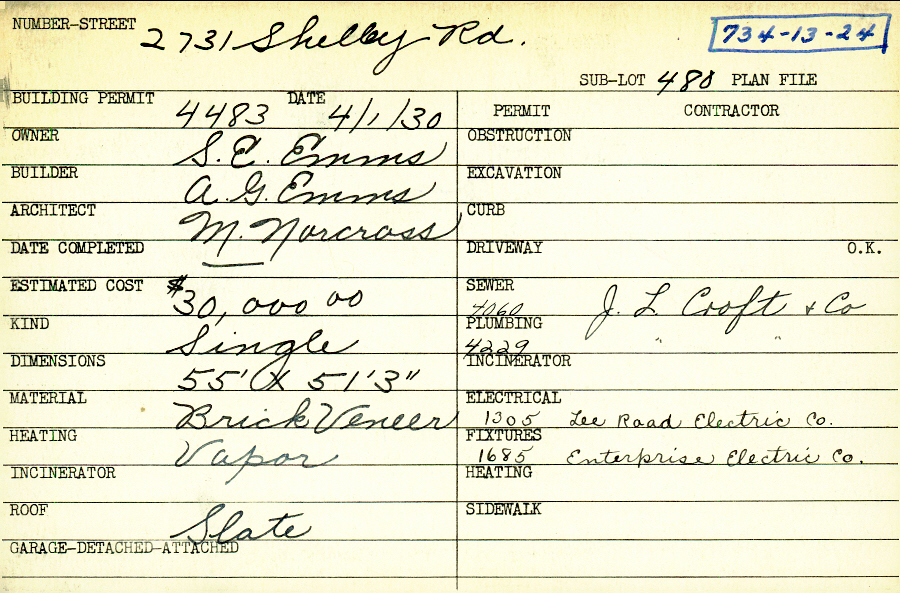 NUMBER-STREET 2731 Shelby Rd.
734-13-24
SUB-LOT 480 PLAN FILE
BUILDING PERMIT 4483 DATE 4/1/30
PERMIT CONTRACTOR
OWNER S. E. Emms
OBSTRUCTION
BUILDER A. G. Emms
EXCAVATION
ARCHITECT M. Norcross
CURB
DATE COMPLETED
DRIVEWAY O.K.
ESTIMATED COST $30,000 00
SEWER 4060 J. L. Croft & Co
KIND Single
PLUMBING 4229 " "
DIMENSIONS 55' X 51'3"
INCINERATOR
MATERIAL Brick Veneer
ELECTRICAL 1305 Lee Road Electric Co.
HEATING Vapor
FIXTURES 1685 Enterprise Electric Co.
INCINERATOR
HEATING
ROOF Slate
SIDEWALK
GARAGE-DETACHED-ATTACHED